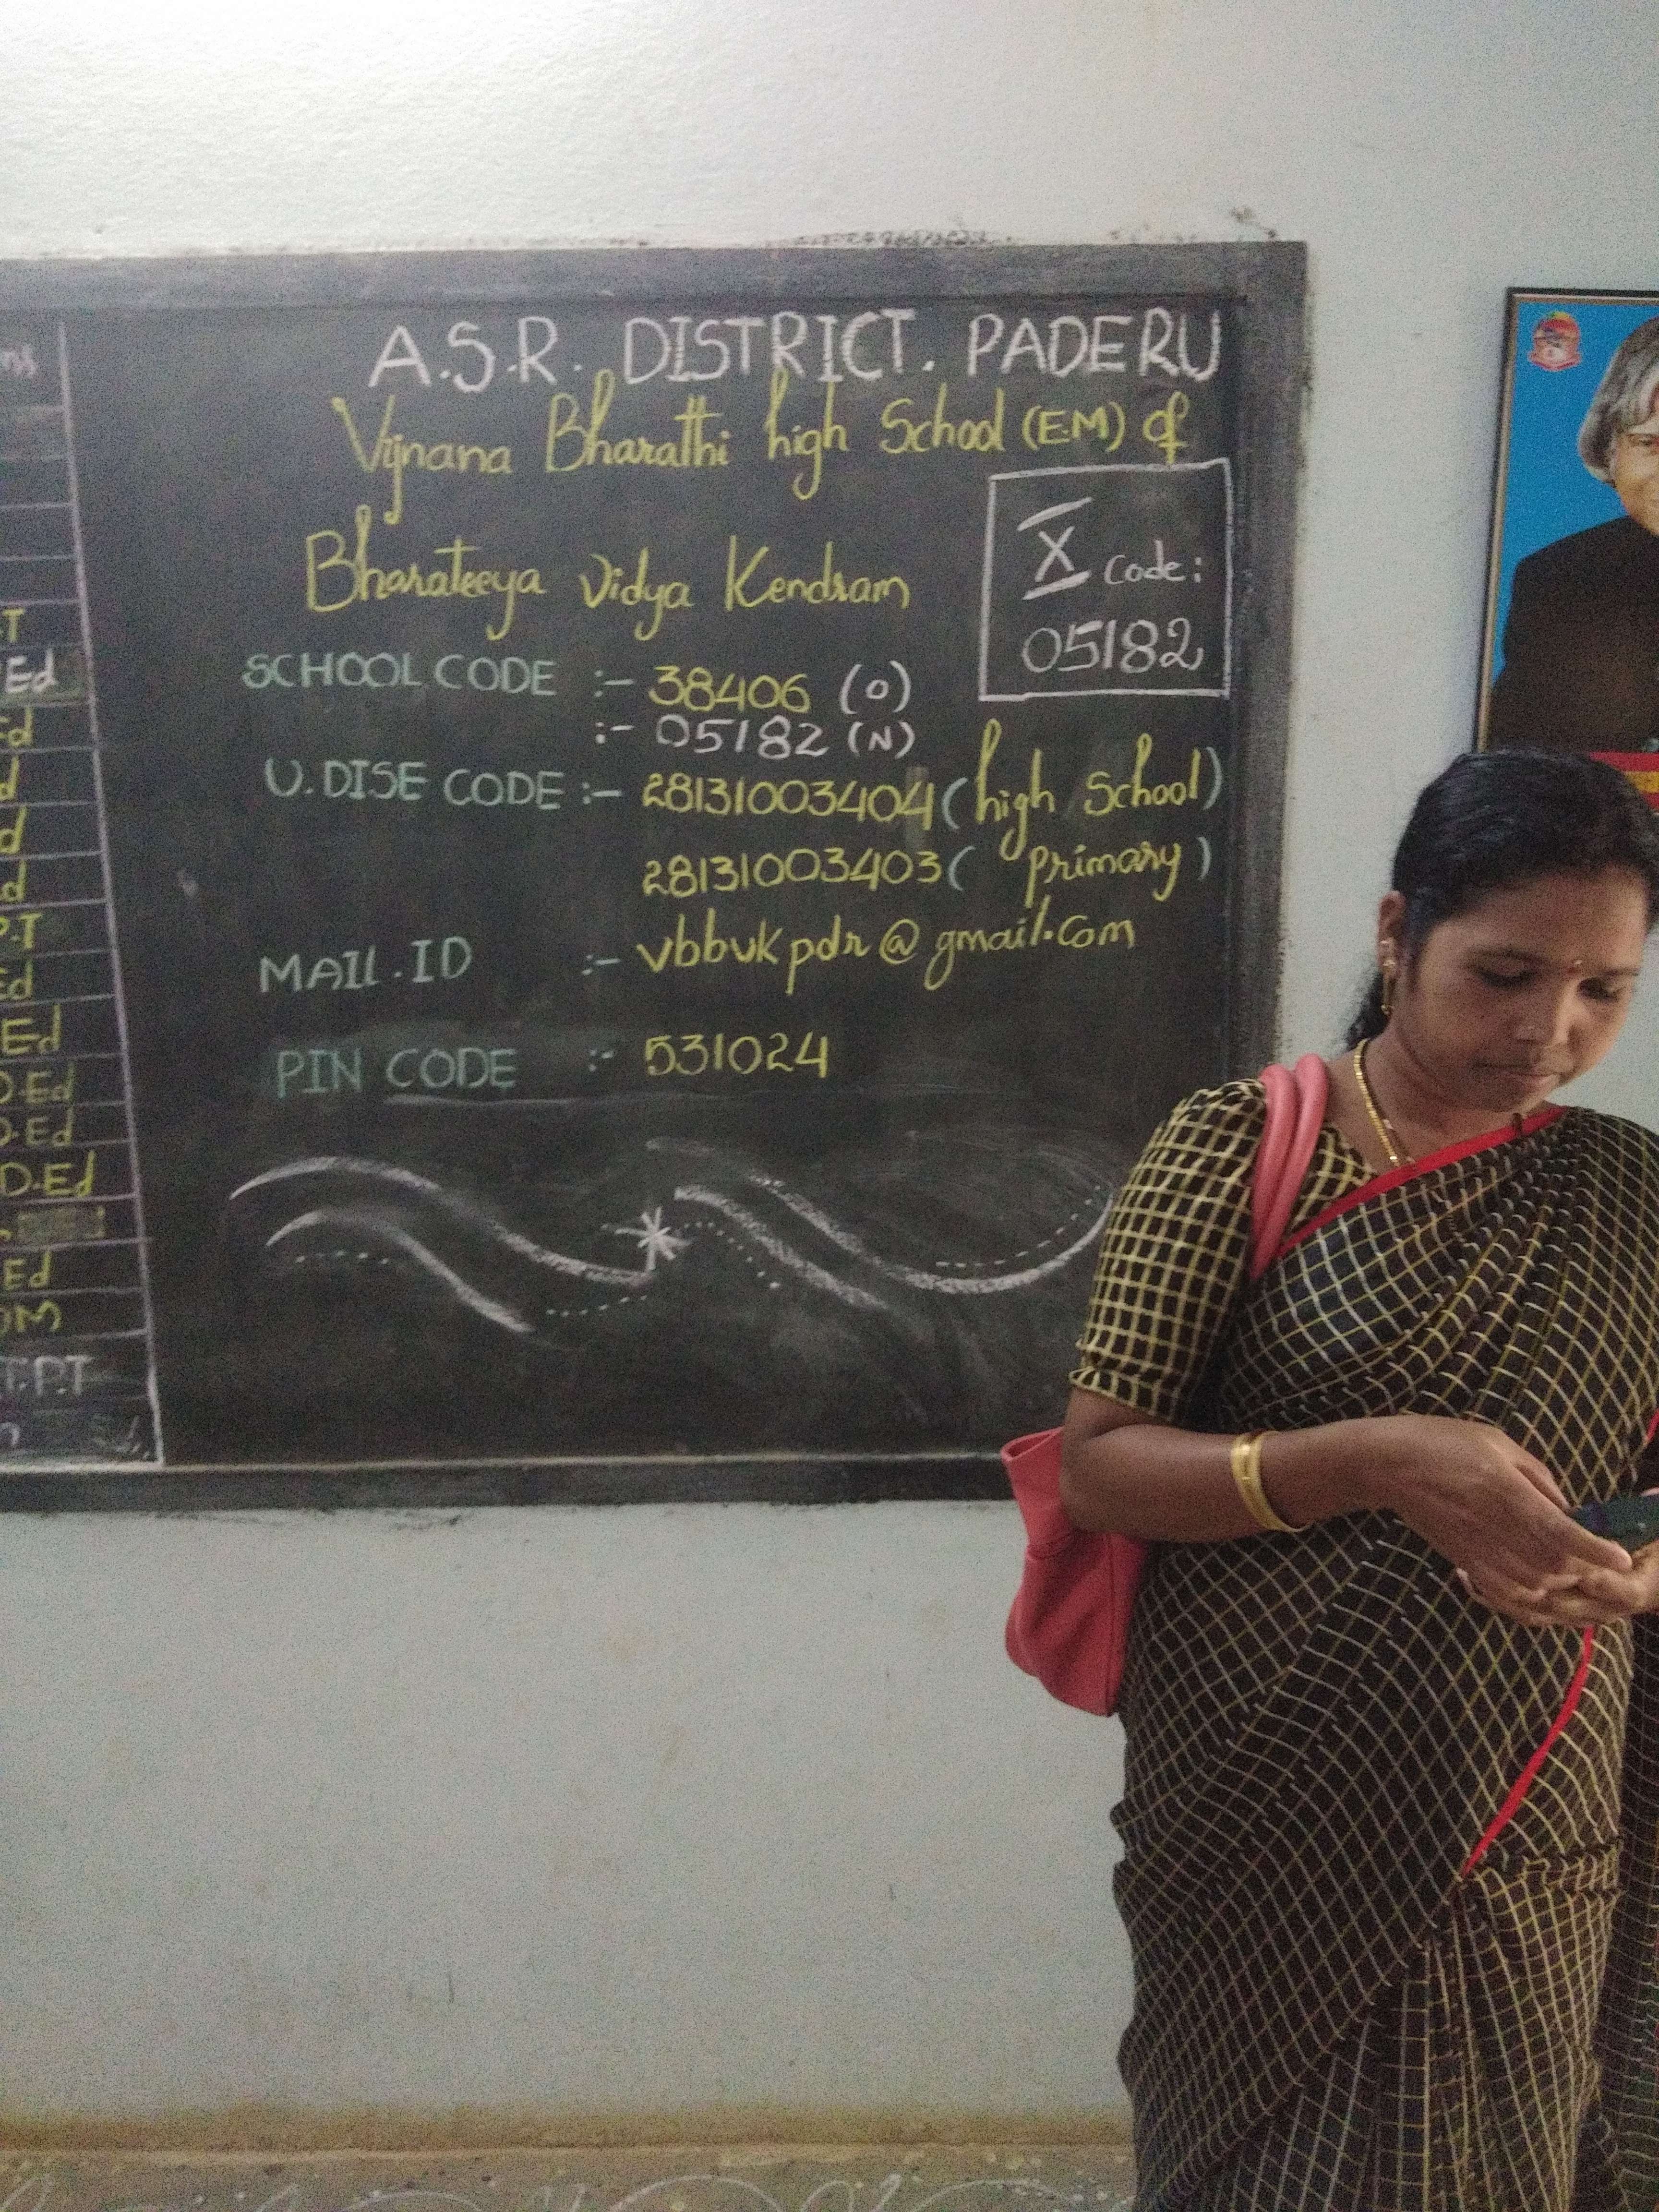 A.S.R. DISTRICT. PADERU
Vijnana Bharathi high School (E.M) of
Bharateeya Vidya Kendram
X Code:
05182
SCHOOL CODE :- 38406 (O)
:- 05182 (N)
U.DISE CODE :- 28131003404 (high School)
28131003403 (primary)
MAIL.ID :- vbbvkpdr@gmail.com
PIN CODE :- 531024
Ed
Ed
P.T
Ed
Ed
D.Ed
D.Ed
D.Ed
Ed
T.P.T